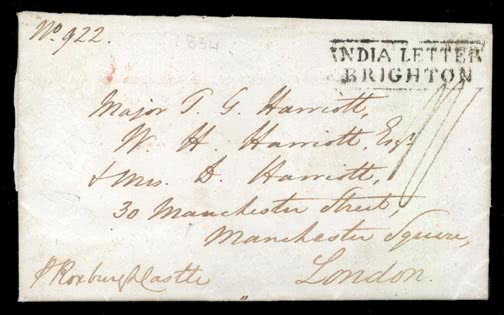 No. 922.
834
INDIA LETTER
BRIGHTON
Major T. G. Harriott,
W. H. Harriott, Esqr.
& Mrs. D. Harriott,
30 Manchester Street,
Manchester Square,
London.
p Roxburgh Castle